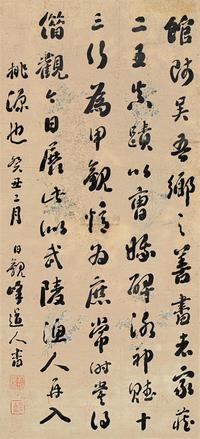 館師吾鄉之善書者家藏
二王真蹟以曹娥碑洛神賦十
三行為甲觀憶為庶常時嘗得
借觀今日展此似武陵漁人再入
桃源也癸丑二月 日觀峰道人書